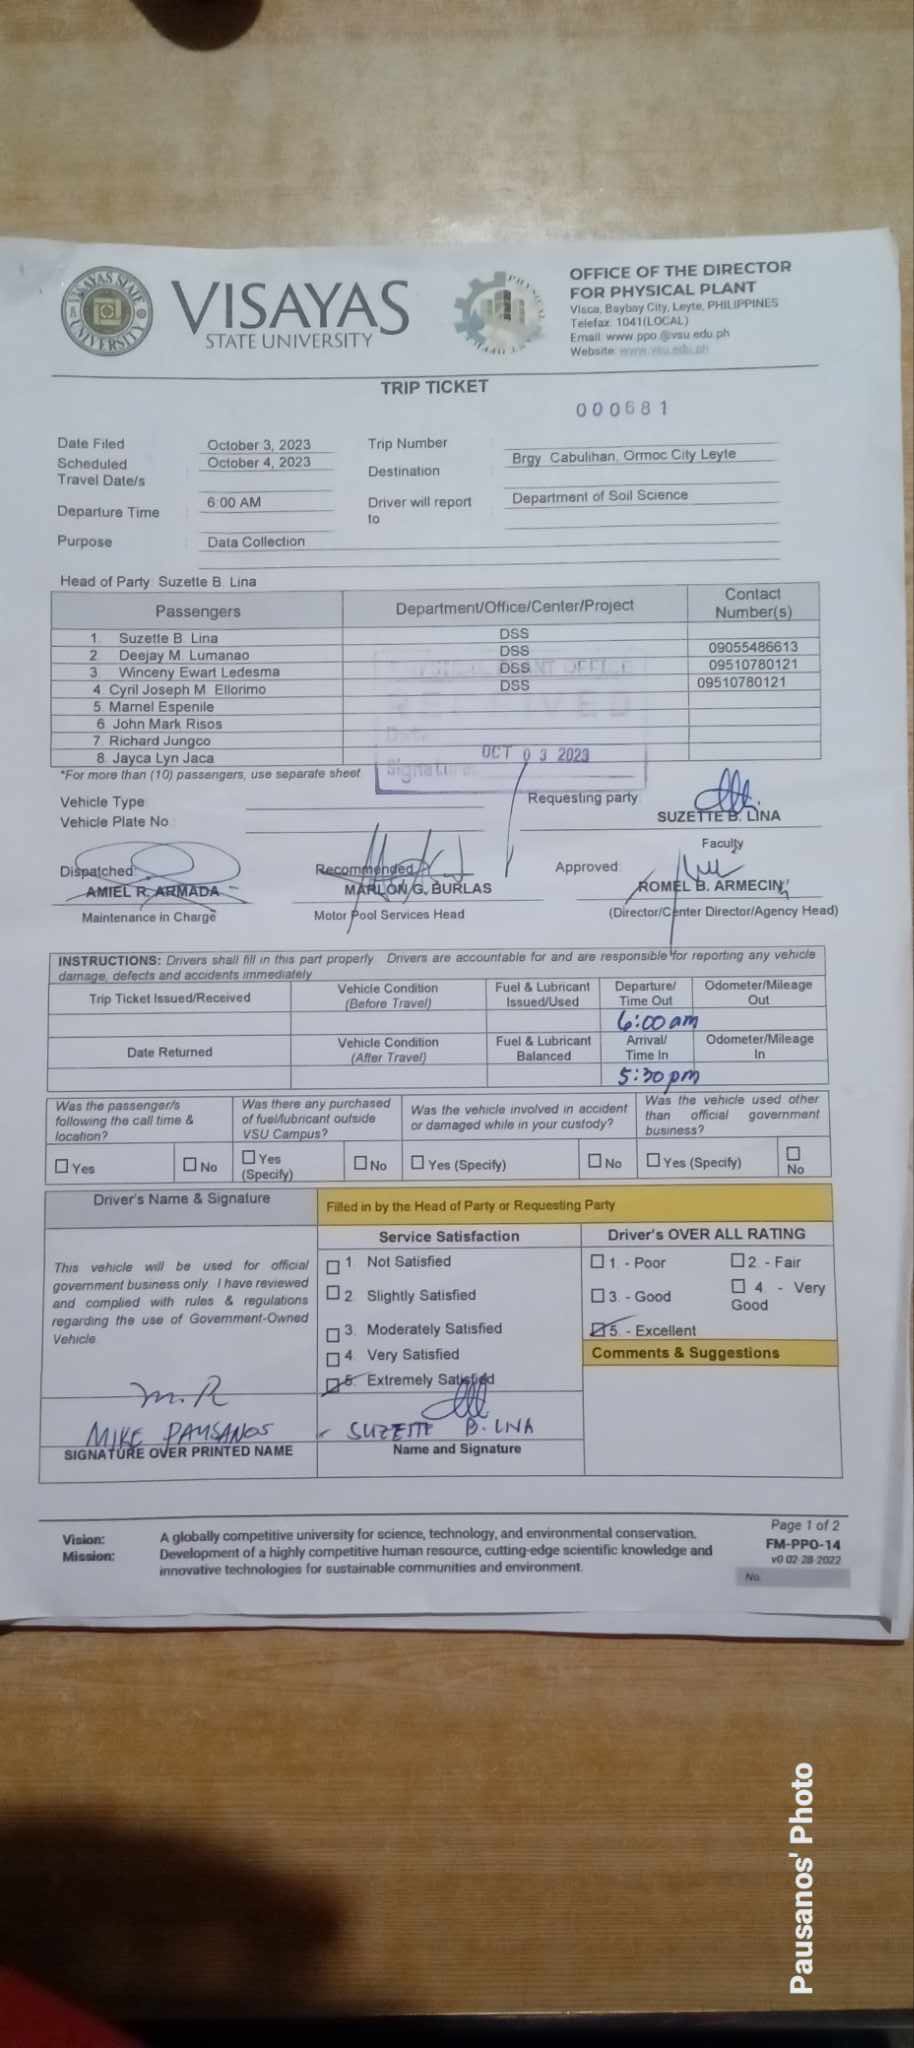 VISAYAS STATE UNIVERSITY
VISAYAS
STATE UNIVERSITY
OFFICE OF THE DIRECTOR
FOR PHYSICAL PLANT
Visca, Baybay City, Leyte, PHILIPPINES
Telefax: 1041(LOCAL)
Email: www.ppo.@vsu.edu.ph
Website: www.vsu.edu.ph
TRIP TICKET
000681
Date Filed : October 3, 2023 Trip Number :
Scheduled Travel Date/s : October 4, 2023 Destination : Brgy. Cabulihan, Ormoc City Leyte
Departure Time : 6:00 AM Driver will report to : Department of Soil Science
Purpose : Data Collection
Head of Party: Suzette B. Lina
Passengers Department/Office/Center/Project Contact Number(s)
1. Suzette B. Lina DSS
2. Deejay M. Lumanao DSS 09055486613
3. Winceny Ewart Ledesma DSS 09510780121
4. Cyril Joseph M. Ellorimo DSS 09510780121
5. Marnel Espenile
6. John Mark Risos
7. Richard Jungco
8. Jayca Lyn Jaca
PLANT OFFICE
RECEIVED
Date:
OCT 03 2023
Signature:
*For more than (10) passengers, use separate sheet
Vehicle Type:
Vehicle Plate No.:
Requesting party:
SUZETTE B. LINA
Faculty
Dispatched: Recommended: Approved:
AMIEL R. ARMADA MARLON G. BURLAS ROMEL B. ARMECIN
Maintenance in Charge Motor Pool Services Head (Director/Center Director/Agency Head)
INSTRUCTIONS: Drivers shall fill in this part properly. Drivers are accountable for and are responsible for reporting any vehicle
damage, defects and accidents immediately
Trip Ticket Issued/Received Vehicle Condition (Before Travel) Fuel & Lubricant Issued/Used Departure/ Time Out Odometer/Mileage Out
6:00 am
Date Returned Vehicle Condition (After Travel) Fuel & Lubricant Balanced Arrival/ Time In Odometer/Mileage In
5:30 pm
Was the passenger/s following the call time & location? Was there any purchased of fuel/lubricant outside VSU Campus? Was the vehicle involved in accident or damaged while in your custody? Was the vehicle used other than official government business?
Yes No Yes (Specify) No Yes (Specify) No Yes (Specify) No
Driver's Name & Signature
Filled in by the Head of Party or Requesting Party
Service Satisfaction
Driver's OVER ALL RATING
This vehicle will be used for official
government business only. I have reviewed
and complied with rules & regulations
regarding the use of Government-Owned
Vehicle.
1. Not Satisfied
2. Slightly Satisfied
3. Moderately Satisfied
4. Very Satisfied
5. Extremely Satisfied
1. - Poor
2. - Fair
3. - Good
4. - Very Good
5. - Excellent
Comments & Suggestions
MIKE PAUSANOS
SIGNATURE OVER PRINTED NAME
SUZETTE B. LINA
Name and Signature
Vision: A globally competitive university for science, technology, and environmental conservation.
Mission: Development of a highly competitive human resource, cutting-edge scientific knowledge and
innovative technologies for sustainable communities and environment.
Page 1 of 2
FM-PPO-14
v0 02-28-2022
No.
Pausanos' Photo